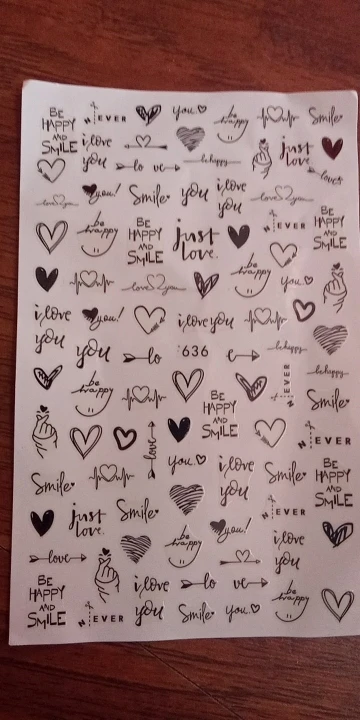 BE
HAPPY
AND
SMILE
EVER
you
be happy
Smile
i love
you
just
love.
lo ve
be happy
love
love you
you!
Smile
you
i love
you
love you
be happy
BE
HAPPY
AND
SMILE
just
love.
EVER
BE
HAPPY
AND
SMILE
love you
be happy
you
i love
you
you!
i love you
you
lo
636
be happy
be happy
BE
HAPPY
AND
SMILE
EVER
be happy
Smile
love
EVER
Smile
you
i love
you
Smile
BE
HAPPY
AND
SMILE
just
love.
Smile
be happy
you!
EVER
i love
you
love
BE
HAPPY
AND
SMILE
EVER
i love
you
lo ve
Smile
you
be happy